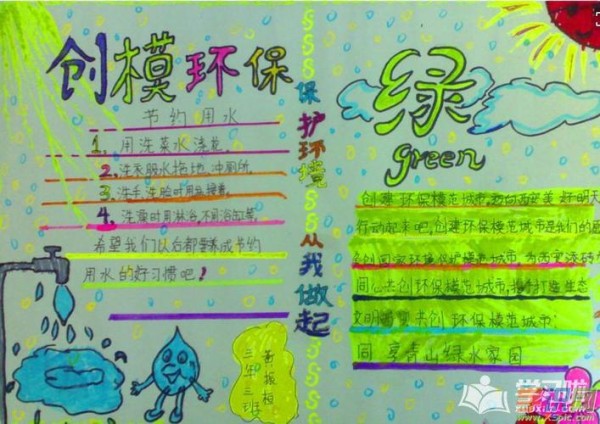 创模环保
节约用水
1. 用洗菜水浇花。
2. 洗衣服水拖地、冲厕所。
3. 洗手、洗脸时用盆接着。
4. 洗澡时用淋浴，不用浴缸等。
希望我们以后都要养成节约
用水的好习惯吧！
三年三班
保护环境
从我做起
绿
green
创建环保模范城市，迈向西安美好明天
行动起来吧，创建环保模范城市是我们的
城市，为西安添砖
同心共创环保模范城市，携手打造生态
文明 共创环保模范城市：
同享青山绿水家园
学习啦
XUEXILA.COM
www.xspic.com